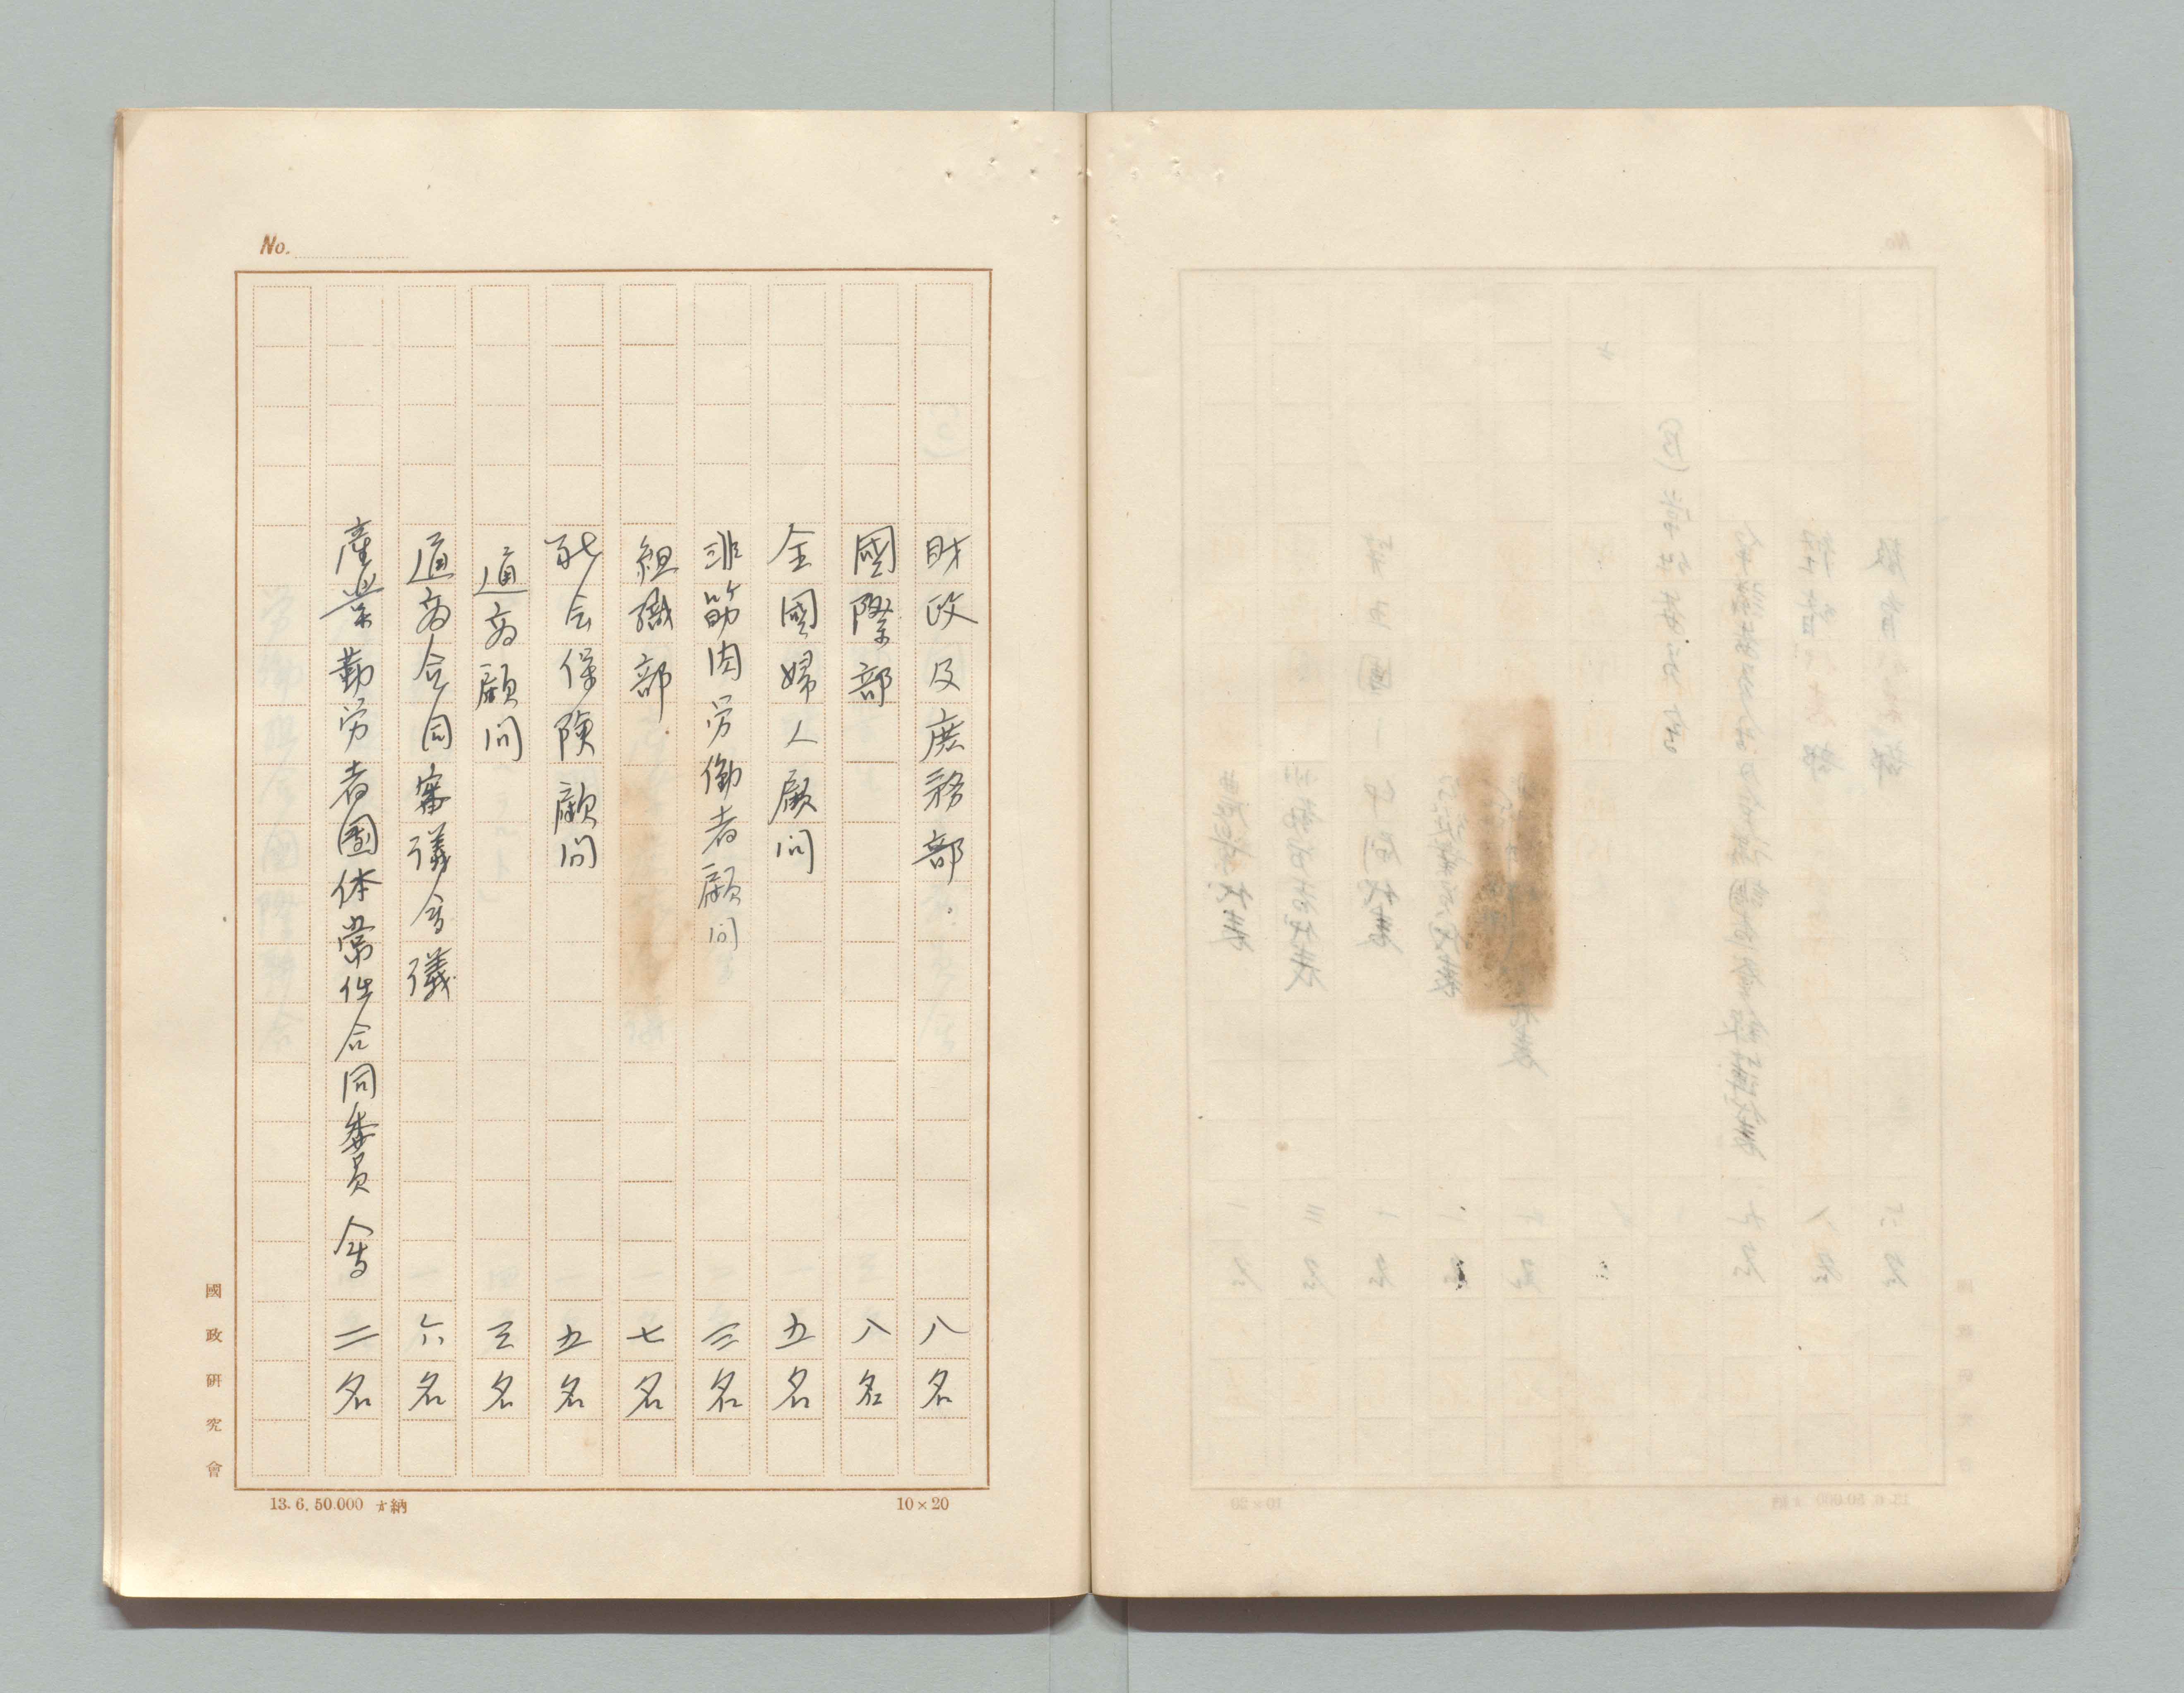 No.
財政及庶務部。 八名
國際部 八名
全國婦人顧問 五名
非筋肉労働者顧問 三名
組織部 七名
社会保険顧問 五名
通商顧問 三名
通商合同審議會議 六名
産業勤労者團体常任合同委員會 二名
國政研究會
13.6.50.000 納
10×20